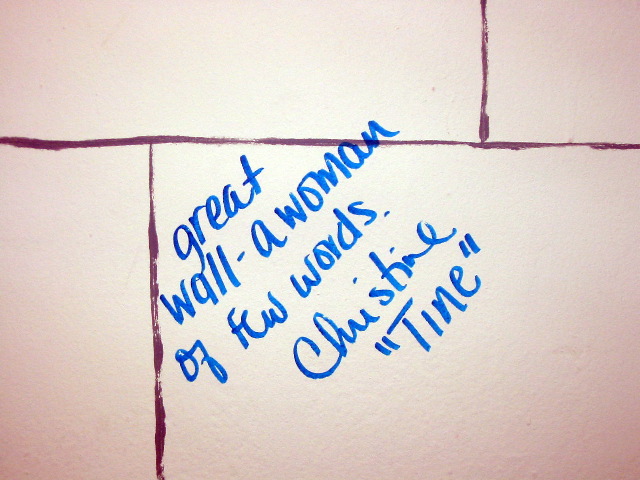 great
wall-a woman
of few words.
Christine
"Tine"